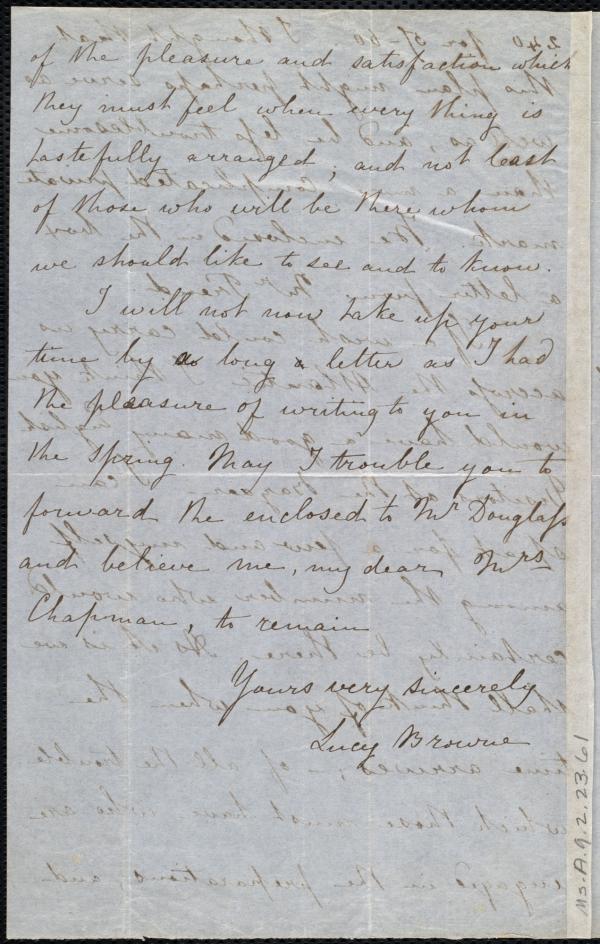 of the pleasure and satisfaction which
they must feel when every thing is
tastefully arranged; and not least
of those who will be there, whom
we should like to see and to know.
I will not now take up your
time by as long a letter as I had
the pleasure of writing to you in
the Spring. May I trouble you to
forward the enclosed to Mr Douglass
and believe me, my dear Mrs
Chapman, to remain
Yours very sincerely
Lucy Browne
Ms.A.9.2.23.61